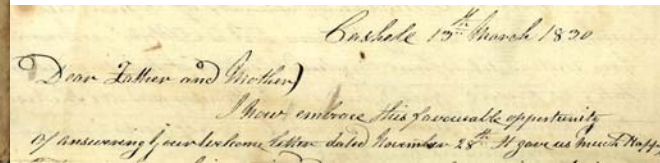 Cashele 13th March 1830
Dear Father and Mother)
I now embrace this favourable opportunity
of answering your welcome letter dated November 28th It gave us much Happ